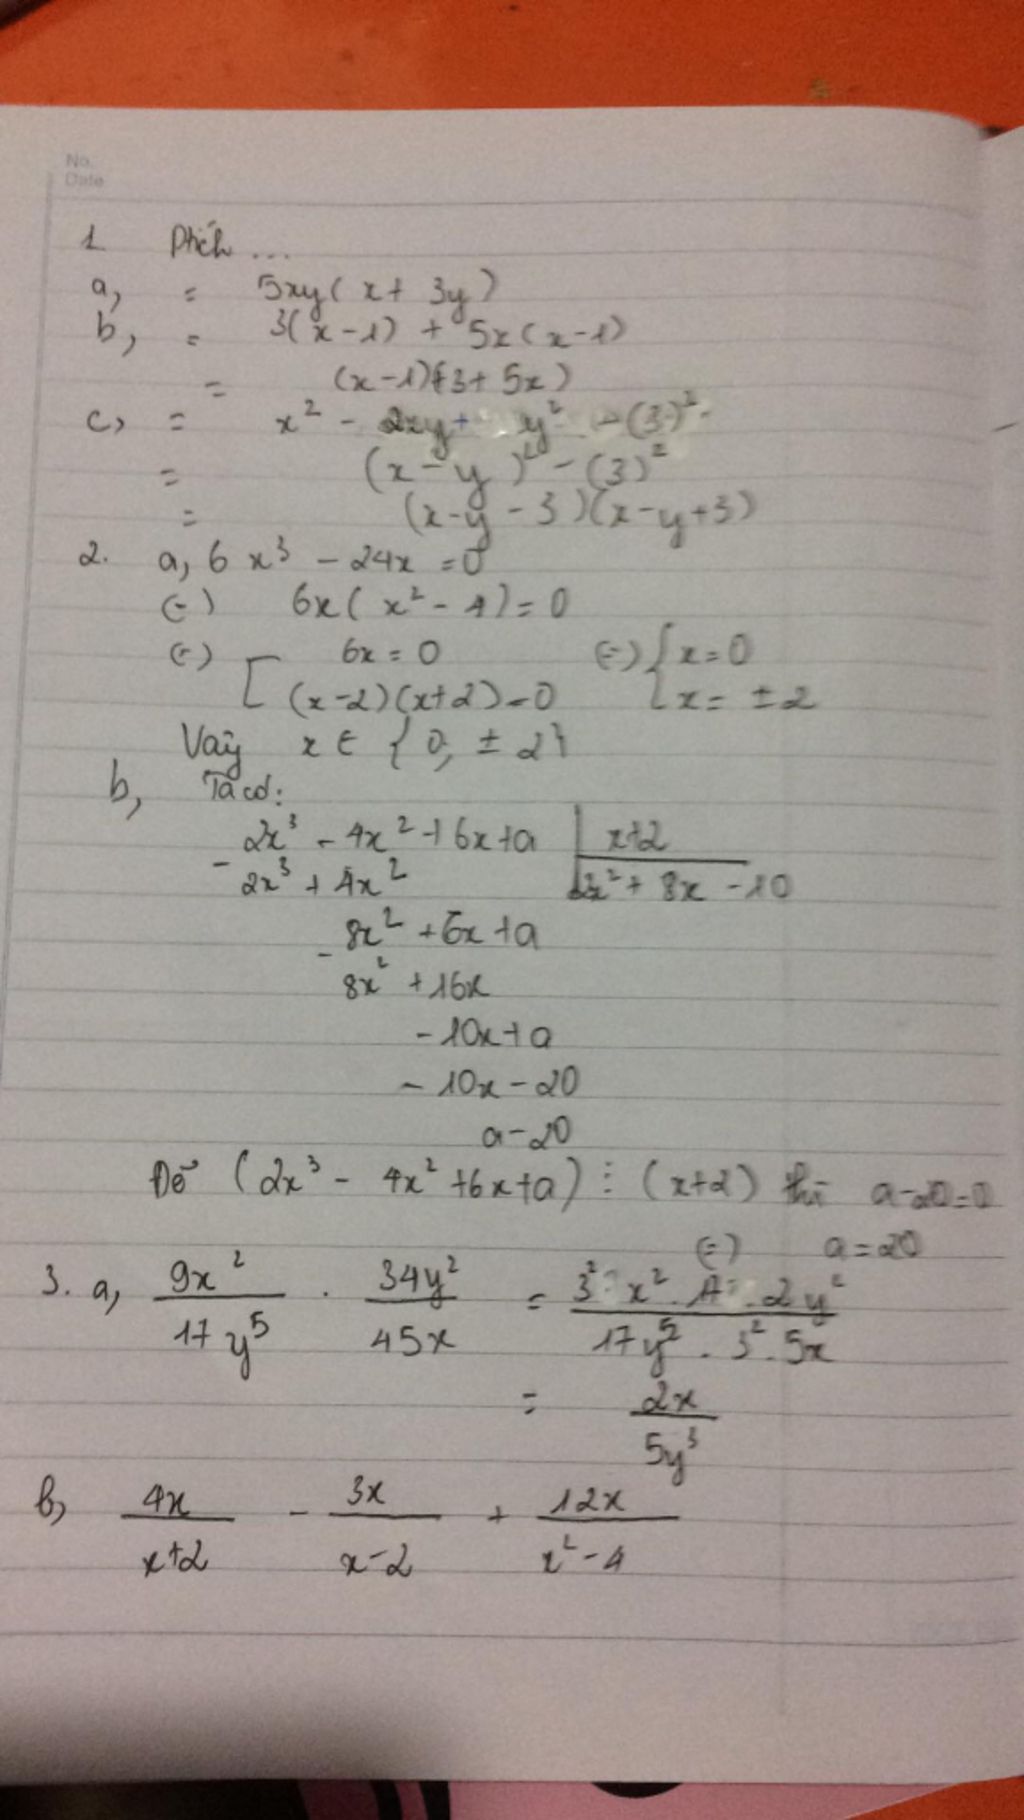 No.
Date
1 Ptích ...
a, = 5xy( x + 3y )
b, = 3(x-1) + 5x(x-1)
= (x-1)(3+ 5x)
c, = x² - 2xy + y² - (3)²
= (x-y)² - (3)²
= (x-y-3)(x-y+3)
2. a, 6x³ - 24x = 0
(=) 6x( x² - 4) = 0
(=) [ 6x = 0 (=) { x = 0
(x-2)(x+2) = 0 x = ±2
Vậy x ∈ { 0, ± 2}
b, Ta có:
2x³ - 4x² + 6x + a | x+2
- 2x³ + 4x² 2x² + 8x - 10
- 8x² + 6x + a
8x² + 16x
- 10x + a
- 10x - 20
a - 20
Để (2x³ - 4x² + 6x + a) ⋮ (x+2) thì a-20=0
(=) a = 20
3. a, 9x²/17y⁵ . 34y²/45x = 3² . x² . 17 . 2y²/17y⁵ . 3² . 5x
= 2x/5y³
b, 4x/x+2 - 3x/x-2 + 12x/x²-4